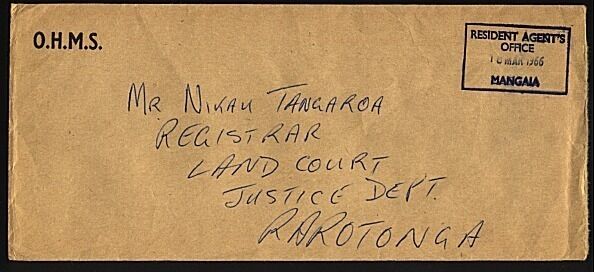 O.H.M.S.
RESIDENT AGENT'S
OFFICE
MAR 1966
MANGAIA
MR NIKAU TANGAROA
REGISTRAR
LAND COURT
JUSTICE DEPT.
RAROTONGA